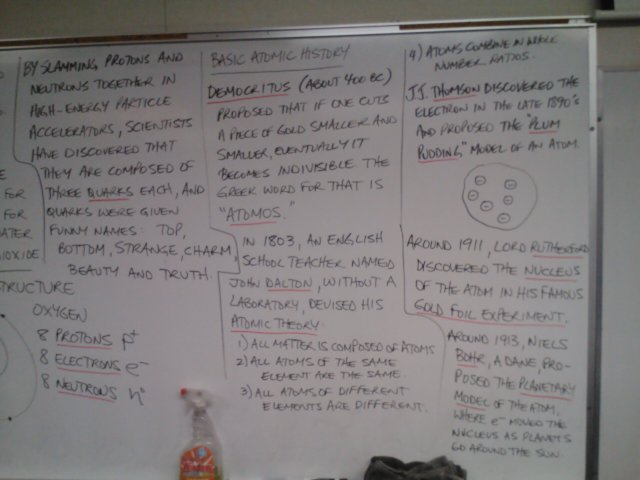 E
FOR
FOR
ATER
IOXIDE
BY SLAMMING PROTONS AND
NEUTRONS TOGETHER IN
HIGH-ENERGY PARTICLE
ACCELERATORS, SCIENTISTS
HAVE DISCOVERED THAT
THEY ARE COMPOSED OF
THREE QUARKS EACH, AND
QUARKS WERE GIVEN
FUNNY NAMES: TOP,
BOTTOM, STRANGE, CHARM,
BEAUTY AND TRUTH.
STRUCTURE
OXYGEN
8 PROTONS p+
8 ELECTRONS e-
8 NEUTRONS n°
BASIC ATOMIC HISTORY
DEMOCRITUS (ABOUT 400 BC)
PROPOSED THAT IF ONE CUTS
A PIECE OF GOLD SMALLER AND
SMALLER, EVENTUALLY IT
BECOMES INDIVISIBLE. THE
GREEK WORD FOR THAT IS
"ATOMOS."
IN 1803, AN ENGLISH
SCHOOL TEACHER NAMED
JOHN DALTON, WITHOUT A
LABORATORY, DEVISED HIS
ATOMIC THEORY:
1) ALL MATTER IS COMPOSED OF ATOMS
2) ALL ATOMS OF THE SAME
ELEMENT ARE THE SAME.
3) ALL ATOMS OF DIFFERENT
ELEMENTS ARE DIFFERENT.
4) ATOMS COMBINE IN WHOLE
NUMBER RATIOS.
J.J. THOMSON DISCOVERED THE
ELECTRON IN THE LATE 1890'S
AND PROPOSED THE "PLUM
PUDDING" MODEL OF AN ATOM.
AROUND 1911, LORD RUTHERFORD
DISCOVERED THE NUCLEUS
OF THE ATOM IN HIS FAMOUS
GOLD FOIL EXPERIMENT.
AROUND 1913, NIELS
BOHR, A DANE, PRO-
POSED THE PLANETARY
MODEL OF THE ATOM,
WHERE e- MOVED THE
NUCLEUS AS PLANETS
GO AROUND THE SUN.